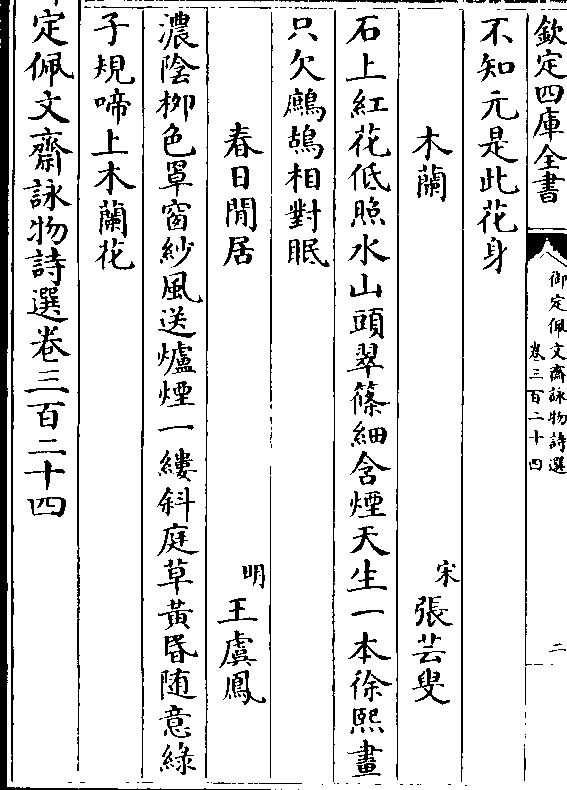 欽定四庫全書
御定佩文齋詠物詩選
卷三百二十四
二
不知元是此花身
木蘭
宋
張芸叟
石上紅花低照水山頭翠篠細含煙天生一本徐熙畫
只欠鷓鴣相對眠
春日閒居
明
王虞鳳
濃陰柳色罩窗紗風送爐煙一縷斜庭草黃昏隨意綠
子規啼上木蘭花
定佩文齋詠物詩選卷三百二十四